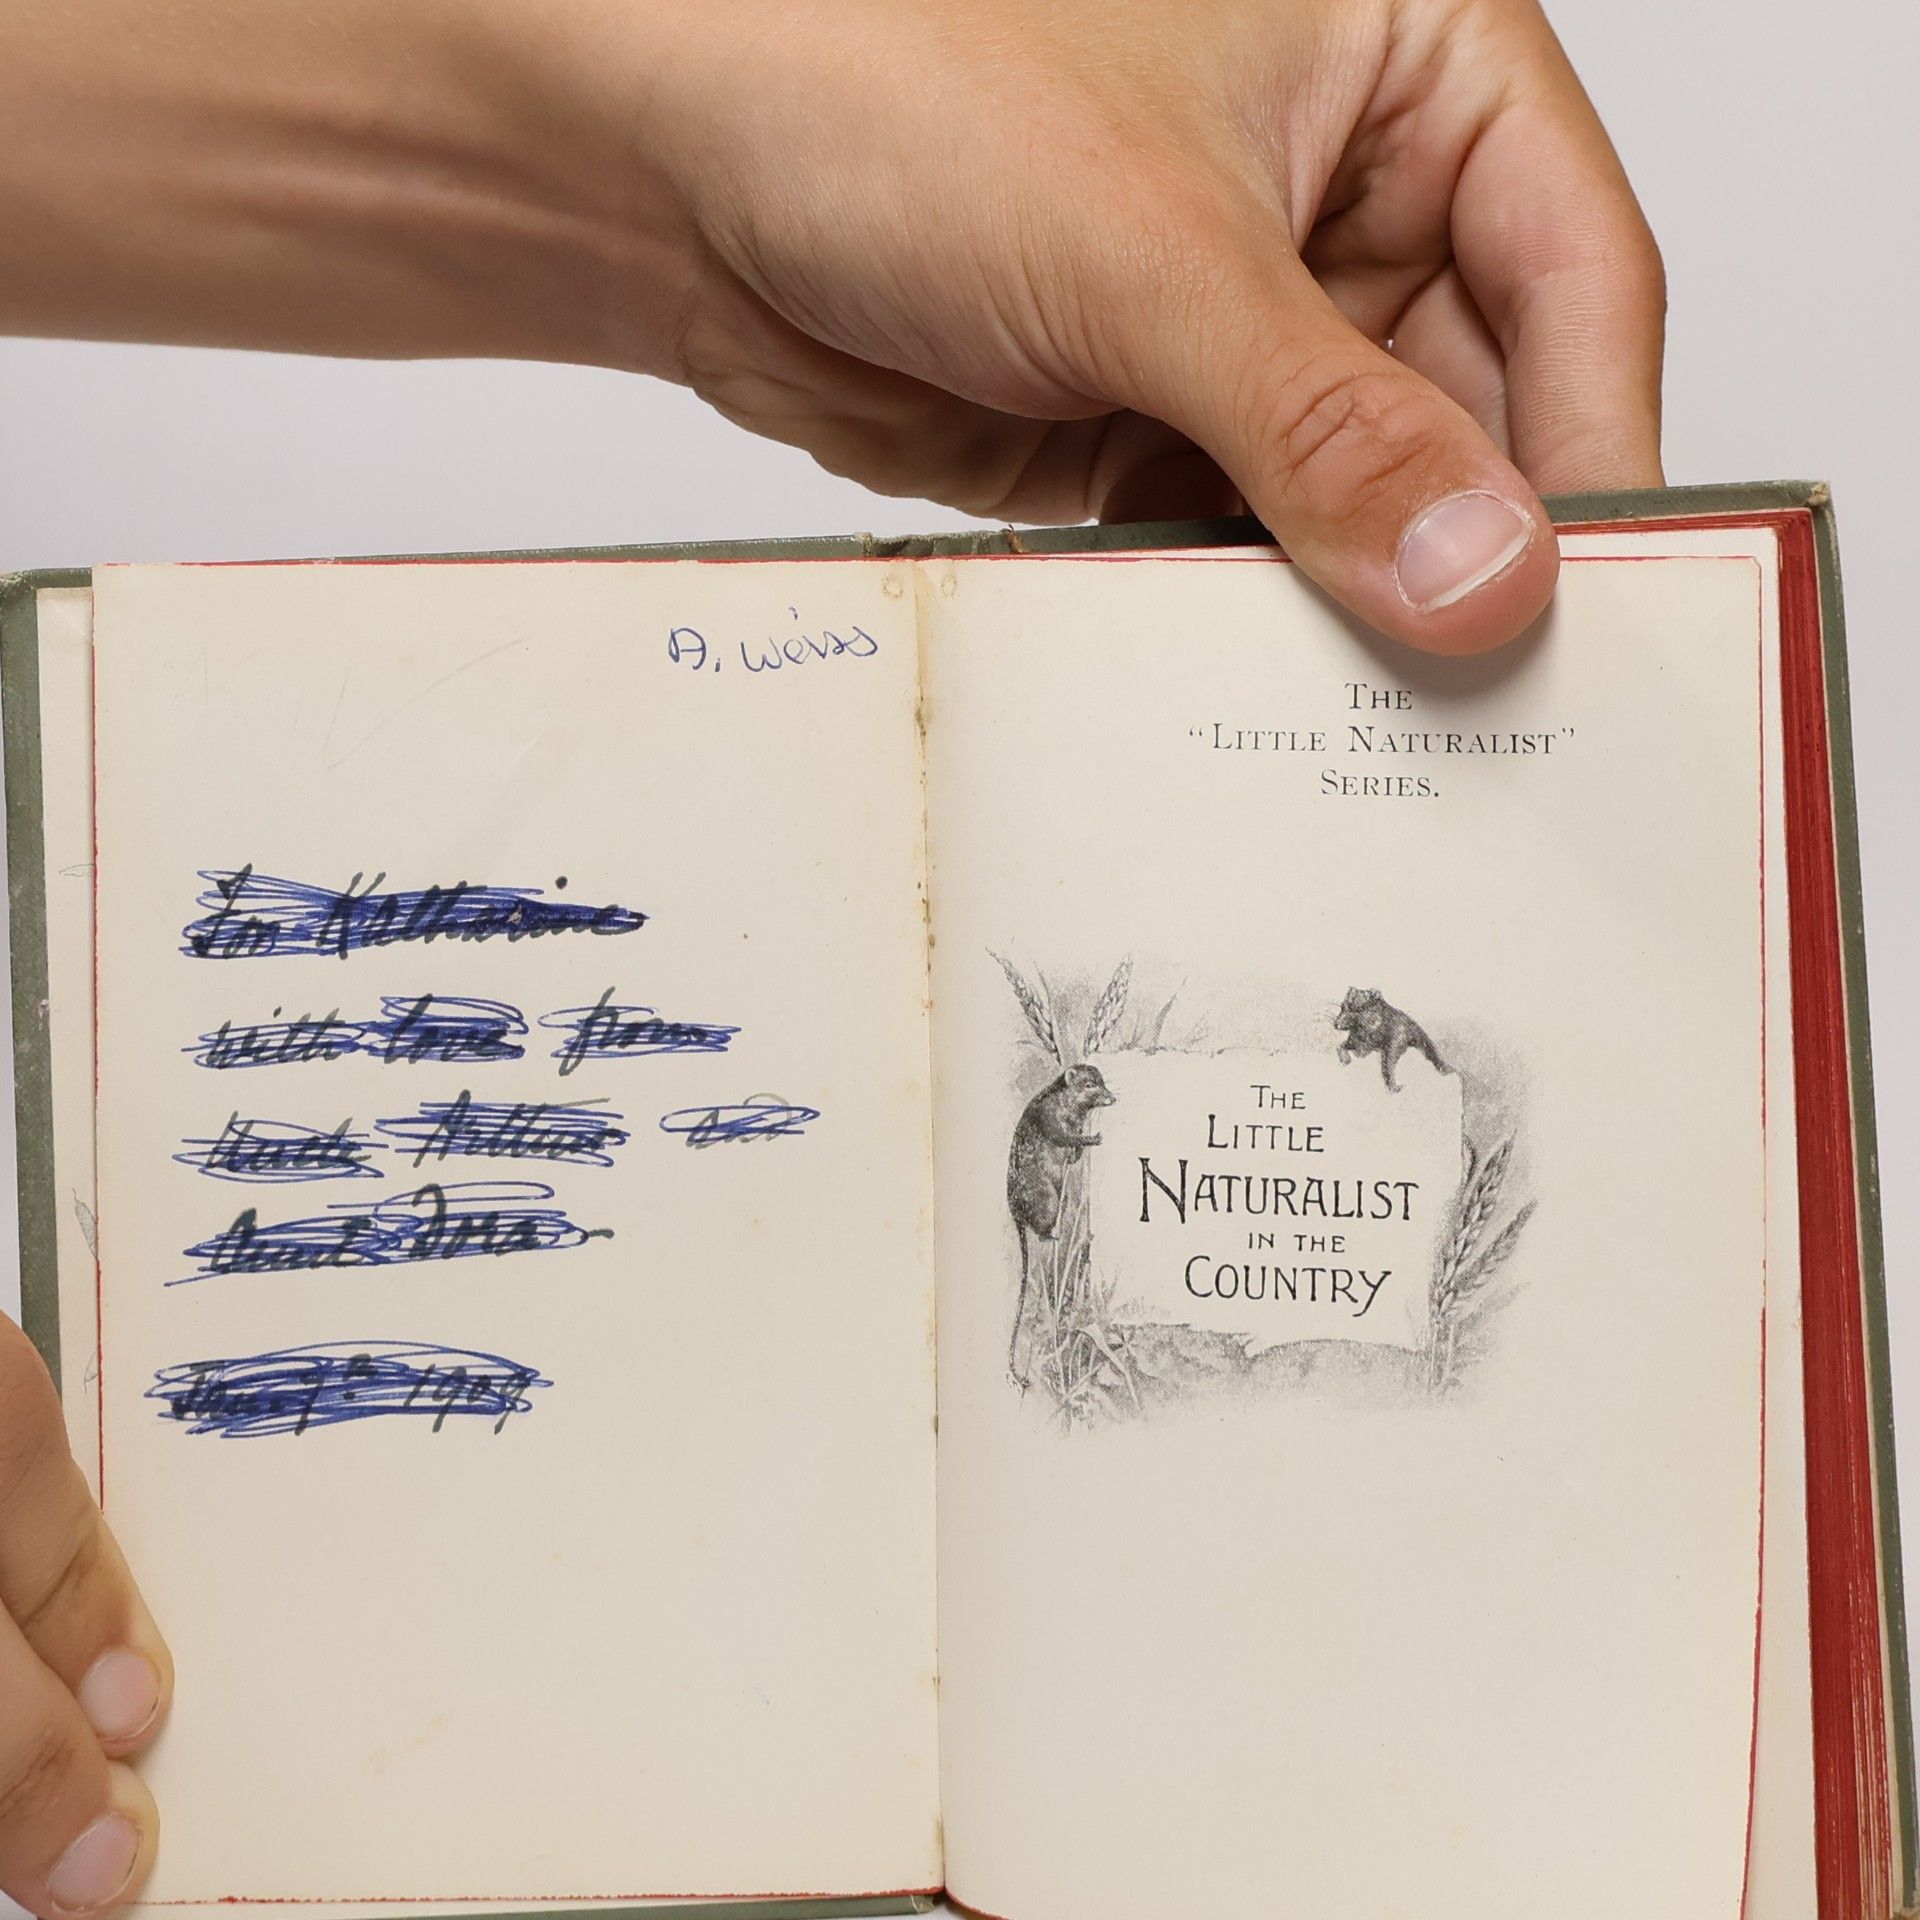 A. Weiss
For Katharine
with love from
Uncle Arthur and
Aunt Dora
Jan. 7th 1909
THE
“LITTLE NATURALIST”
SERIES.
THE
LITTLE
NATURALIST
IN THE
COUNTRY